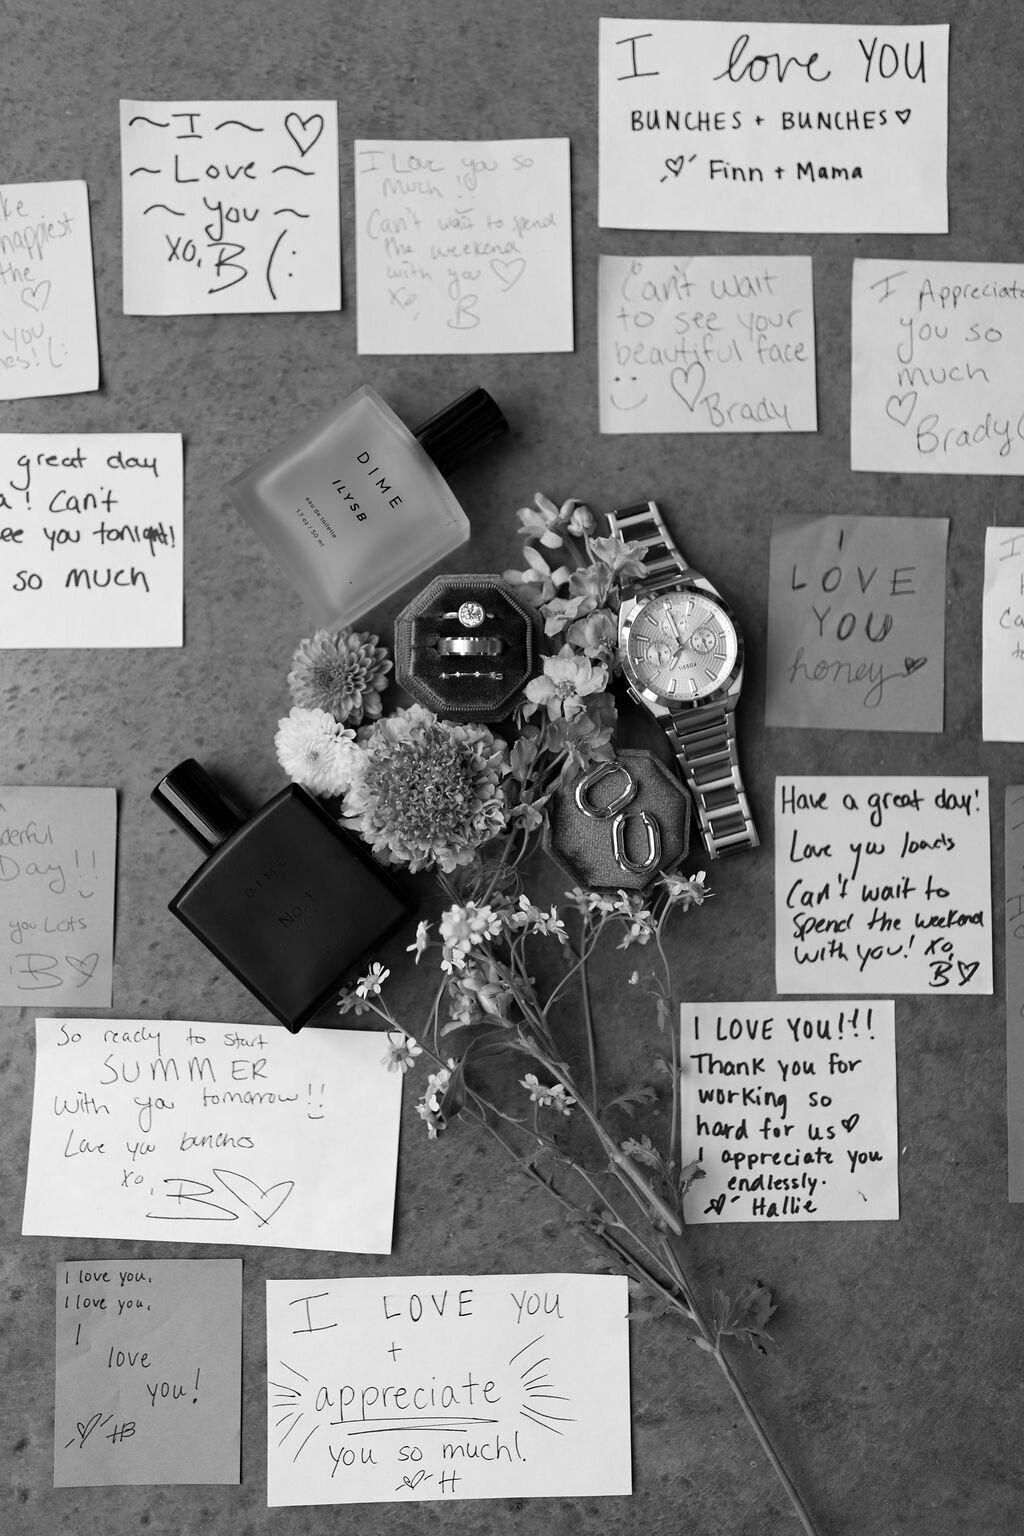 I love YOU
BUNCHES + BUNCHES ♡
♡ Finn + Mama
~ I ~ ♡
~ Love ~
~ you ~
xo, B (:
I Love you so
much !!
Can't wait to spend
the weekend
with you ♡
xo,
B
happiest
the
♡
you
(:
Can't wait
to see your
beautiful face
♡ Brady
I Appreciate
you so
much
♡
Brady
great day
! Can't
see you tonight!
so much
DIME
ILYSB
eau de toilette
1.7 oz / 50 ml
FOSSIL
I
LOVE
YOU
honey ♡
Day!!
you Lots
B ♡
DIME
No. 1
Have a great day!
Love you loads
Can't wait to
spend the weekend
with you! xo,
B ♡
So ready to start
SUMMER
with you tomorrow!!
Love you bunches
xo,
B ♡
I LOVE YOU!!!
Thank you for
working so
hard for us ♡
I appreciate you
endlessly.
♡ Hallie
I love you,
I love you,
I
love
you!
♡ HB
I LOVE YOU
+
appreciate
you so much!
♡ H